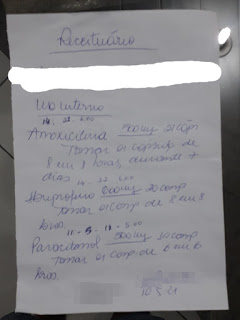 Receituário
Uso interno
14. 22.
Amoxicilina 500mg 21 cáps
Tomar 01 cápsula de
8 em 8 horas, durante 7
dias 14 - 22
Ibuprofeno 600mg 20 comp
Tomar 01 comp de 8 em 8
horas. 11 - 5 - 18 - 5:00
Paracetamol 500mg 20 comp
Tomar 01 comp. de 6 em 6
horas.